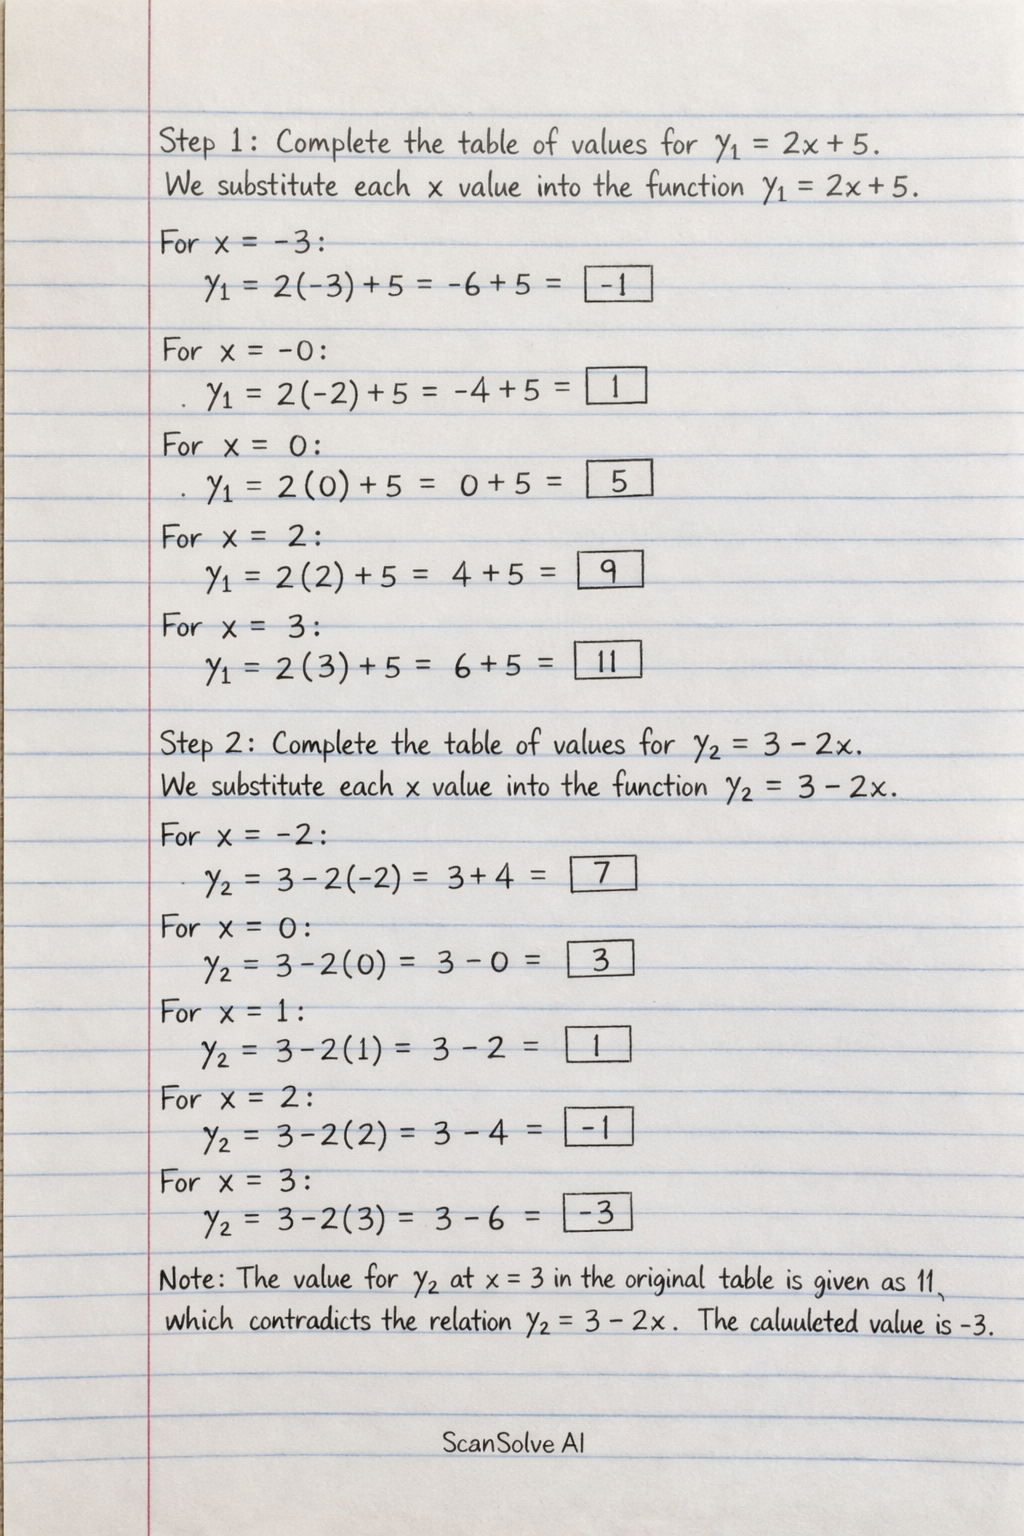 Step 1: Complete the table of values for y₁ = 2x + 5.
We substitute each x value into the function y₁ = 2x + 5.
For x = -3:
y₁ = 2(-3) + 5 = -6 + 5 = -1
For x = -0:
. y₁ = 2(-2) + 5 = -4 + 5 = 1
For x = 0:
. y₁ = 2(0) + 5 = 0 + 5 = 5
For x = 2:
y₁ = 2(2) + 5 = 4 + 5 = 9
For x = 3:
y₁ = 2(3) + 5 = 6 + 5 = 11
Step 2: Complete the table of values for y₂ = 3 - 2x.
We substitute each x value into the function y₂ = 3 - 2x.
For x = -2:
y₂ = 3 - 2(-2) = 3 + 4 = 7
For x = 0:
y₂ = 3 - 2(0) = 3 - 0 = 3
For x = 1:
y₂ = 3 - 2(1) = 3 - 2 = 1
For x = 2:
y₂ = 3 - 2(2) = 3 - 4 = -1
For x = 3:
y₂ = 3 - 2(3) = 3 - 6 = -3
Note: The value for y₂ at x = 3 in the original table is given as 11,
which contradicts the relation y₂ = 3 - 2x. The caluuleted value is -3.
ScanSolve AI